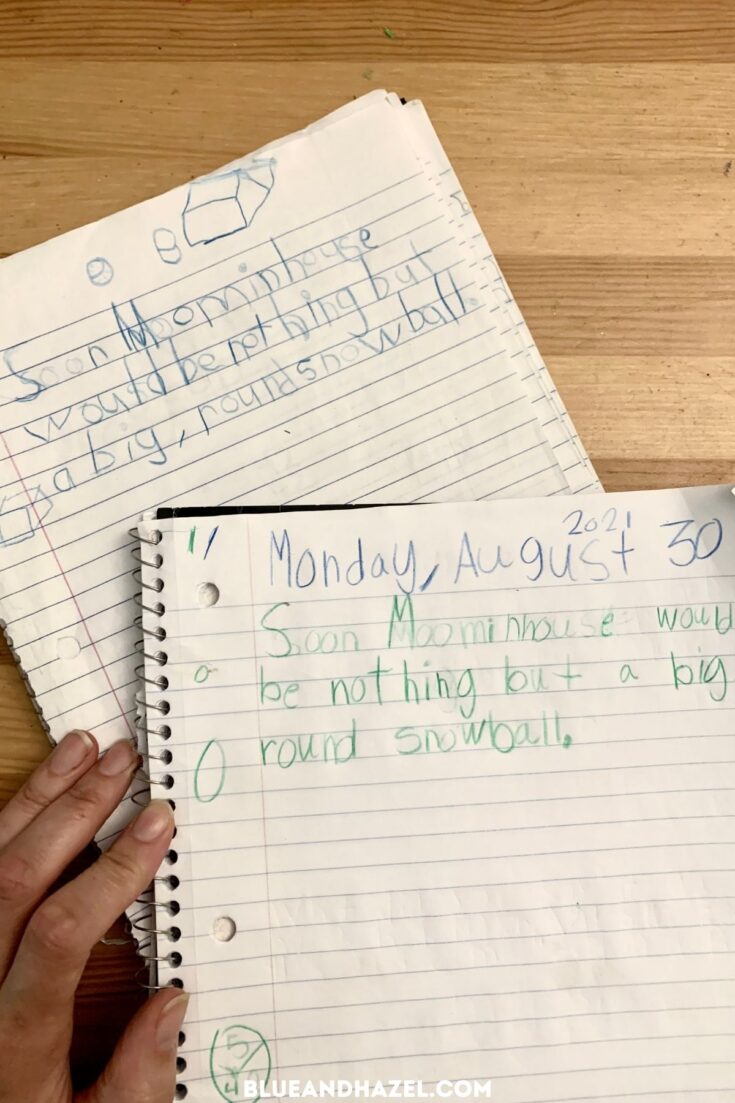 Soon Moominhouse
would be nothing but
a big, round snowball.
Monday, August 30
2021
Soon Moominhouse would
be nothing but a big
round snowball.
5/40
BLUEANDHAZEL.COM